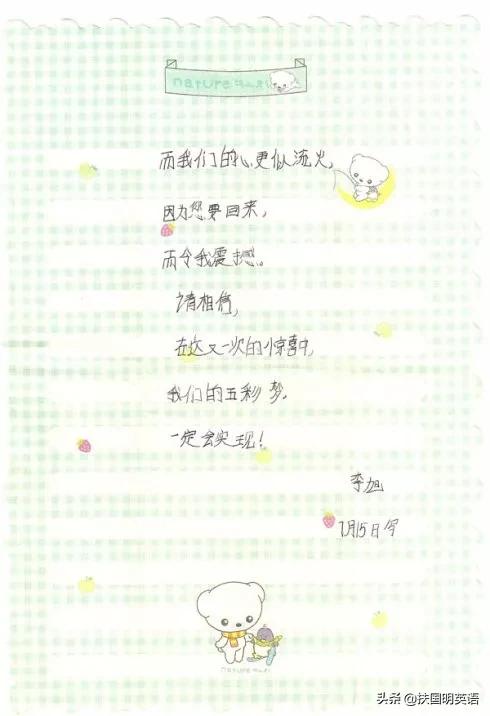 而我们的心更似流火,
因为您要回来,
而令我震撼。
请相信,
在这又一次的惊喜中,
我们的五彩梦,
一定会实现!
李旭
7月15日
nature
头条 @扶国明英语